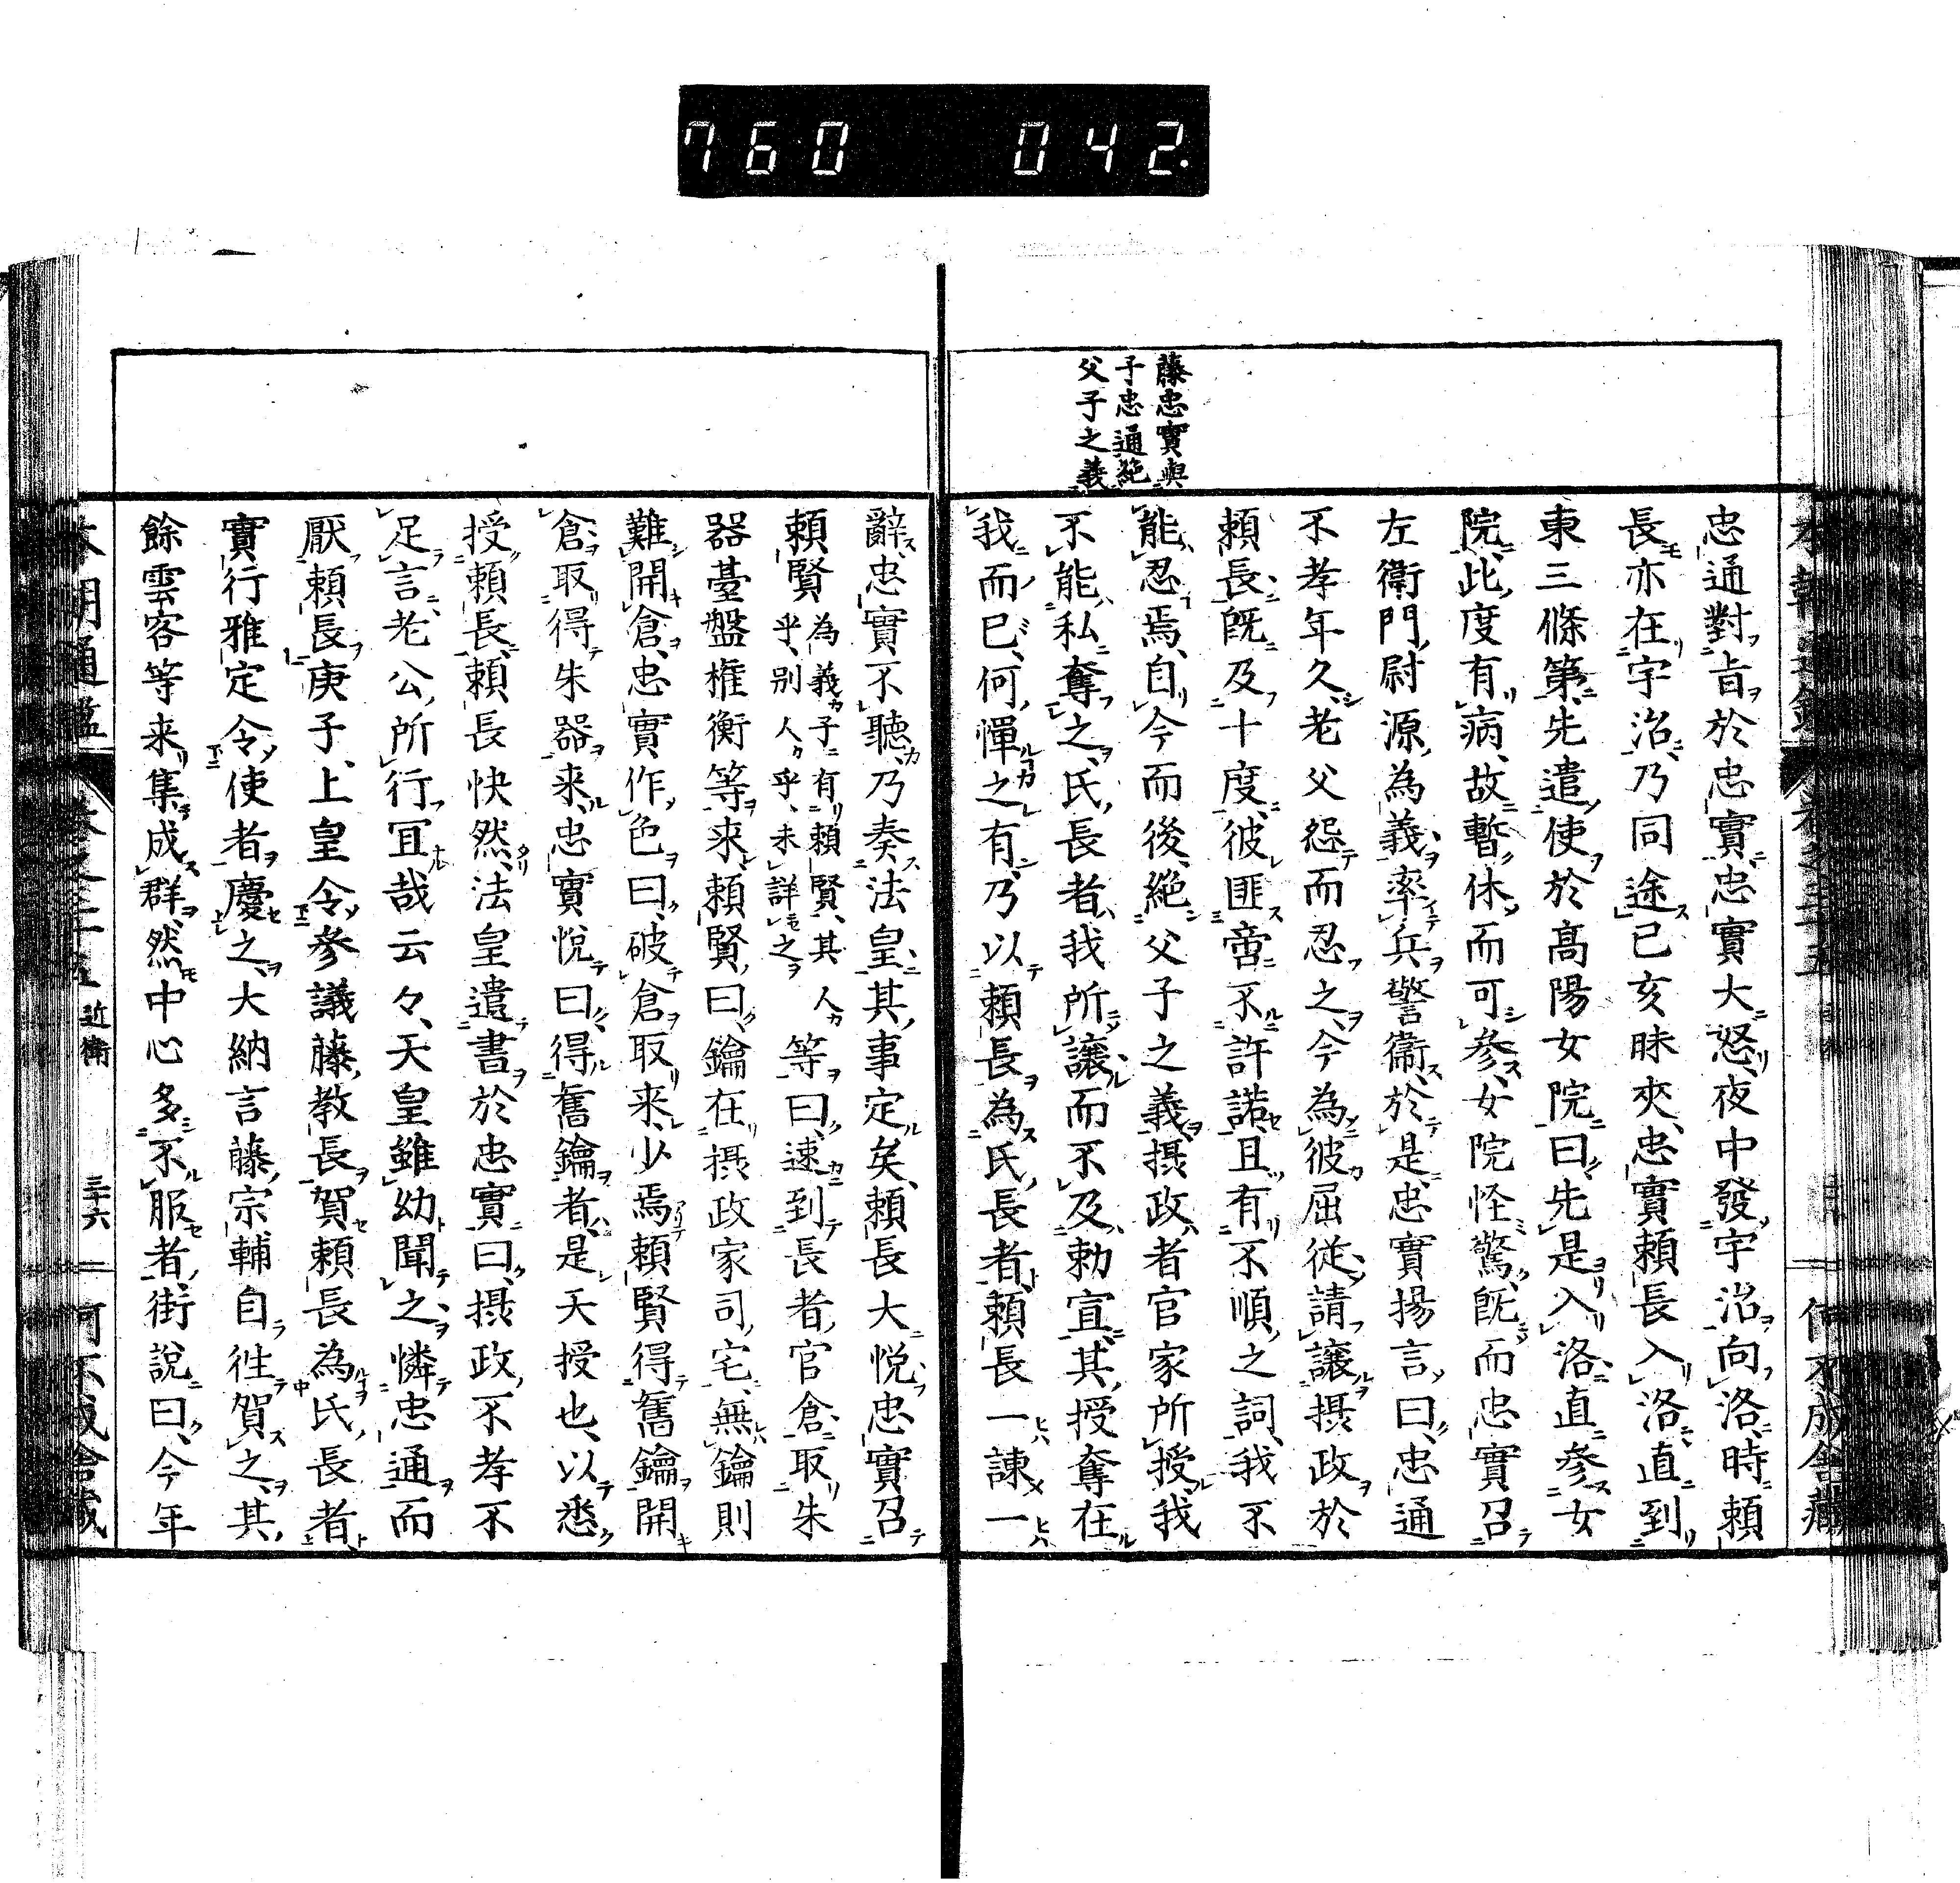 760 042.
藤忠實與
子忠通絕
父子之義
忠通對旨於忠實忠實大怒夜中發宇治向洛時賴
長亦在宇治乃同途己亥昧夾忠實賴長入洛直到
東三條第先遣使於高陽女院曰先是入洛直參女
院此度有病故暫休而可參女院怪驚既而忠實召
左衛門尉源為義率兵警衞於是忠實揚言曰忠通
不孝年久老父怨而忍之今為彼屈従請讓摂政於
賴長既及十度彼匪啻不許諾且有不順之詞我不
能忍焉自今而後絕父子之義摂政者官家所授我
不能私奪之氏長者我所讓而不及勅宣其授奪在
我而已何憚之有乃以賴長為氏長者賴長一諫一
辭忠實不聽乃奏法皇其事定矣賴長大悅忠實召
賴賢為義子有賴賢其人乎別人乎未詳之等曰速到長者官倉取朱
器臺盤權衡等来賴賢曰鑰在摂政家司宅無鑰則
難開倉忠實作色曰破倉取来少焉賴賢得舊鑰開
倉取得朱器来忠實悅曰得舊鑰者是天授也以悉
授賴長賴長快然法皇遣書於忠實曰摂政不孝不
足言老公所行冝哉云々天皇雖幼聞之憐忠通而
厭賴長庚子上皇令參議藤教長賀賴長為氏長者
實行雅定令使者慶之大納言藤宗輔自徃賀之其
餘雲客等来集成群然中心多不服者街說曰今年
本朝通鑑 卷之三十五 近衛 三十六